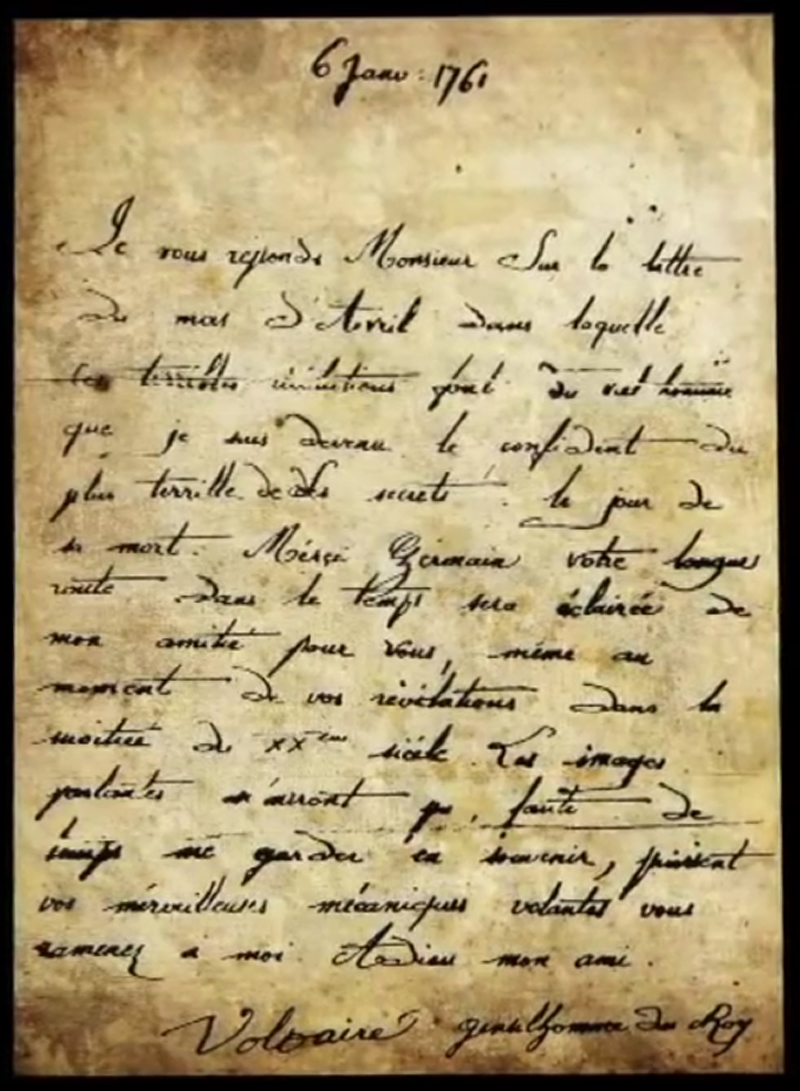 6 Janv: 1761
Je vous reponds Monsieur Sur la lettre
du mois d'Avril dans laquelle
terribles font du viel homme
que je suis devenu le confident du
plus terrible de des secrets : le jour de
sa mort. Mérçi Germain votre longue
route dans le temps sera éclairée de
mon amitié pour vous, même au
moment de vos révélations dans la
moitiée de XXeme siécle. Les images
parlantes m'auront faute de
temps me garder en souvenir, puissent
vos mérveilleuses mécaniques volantes vous
ramenez a moi. Adieu mon ami.
Voltaire gentilhomme du Roy